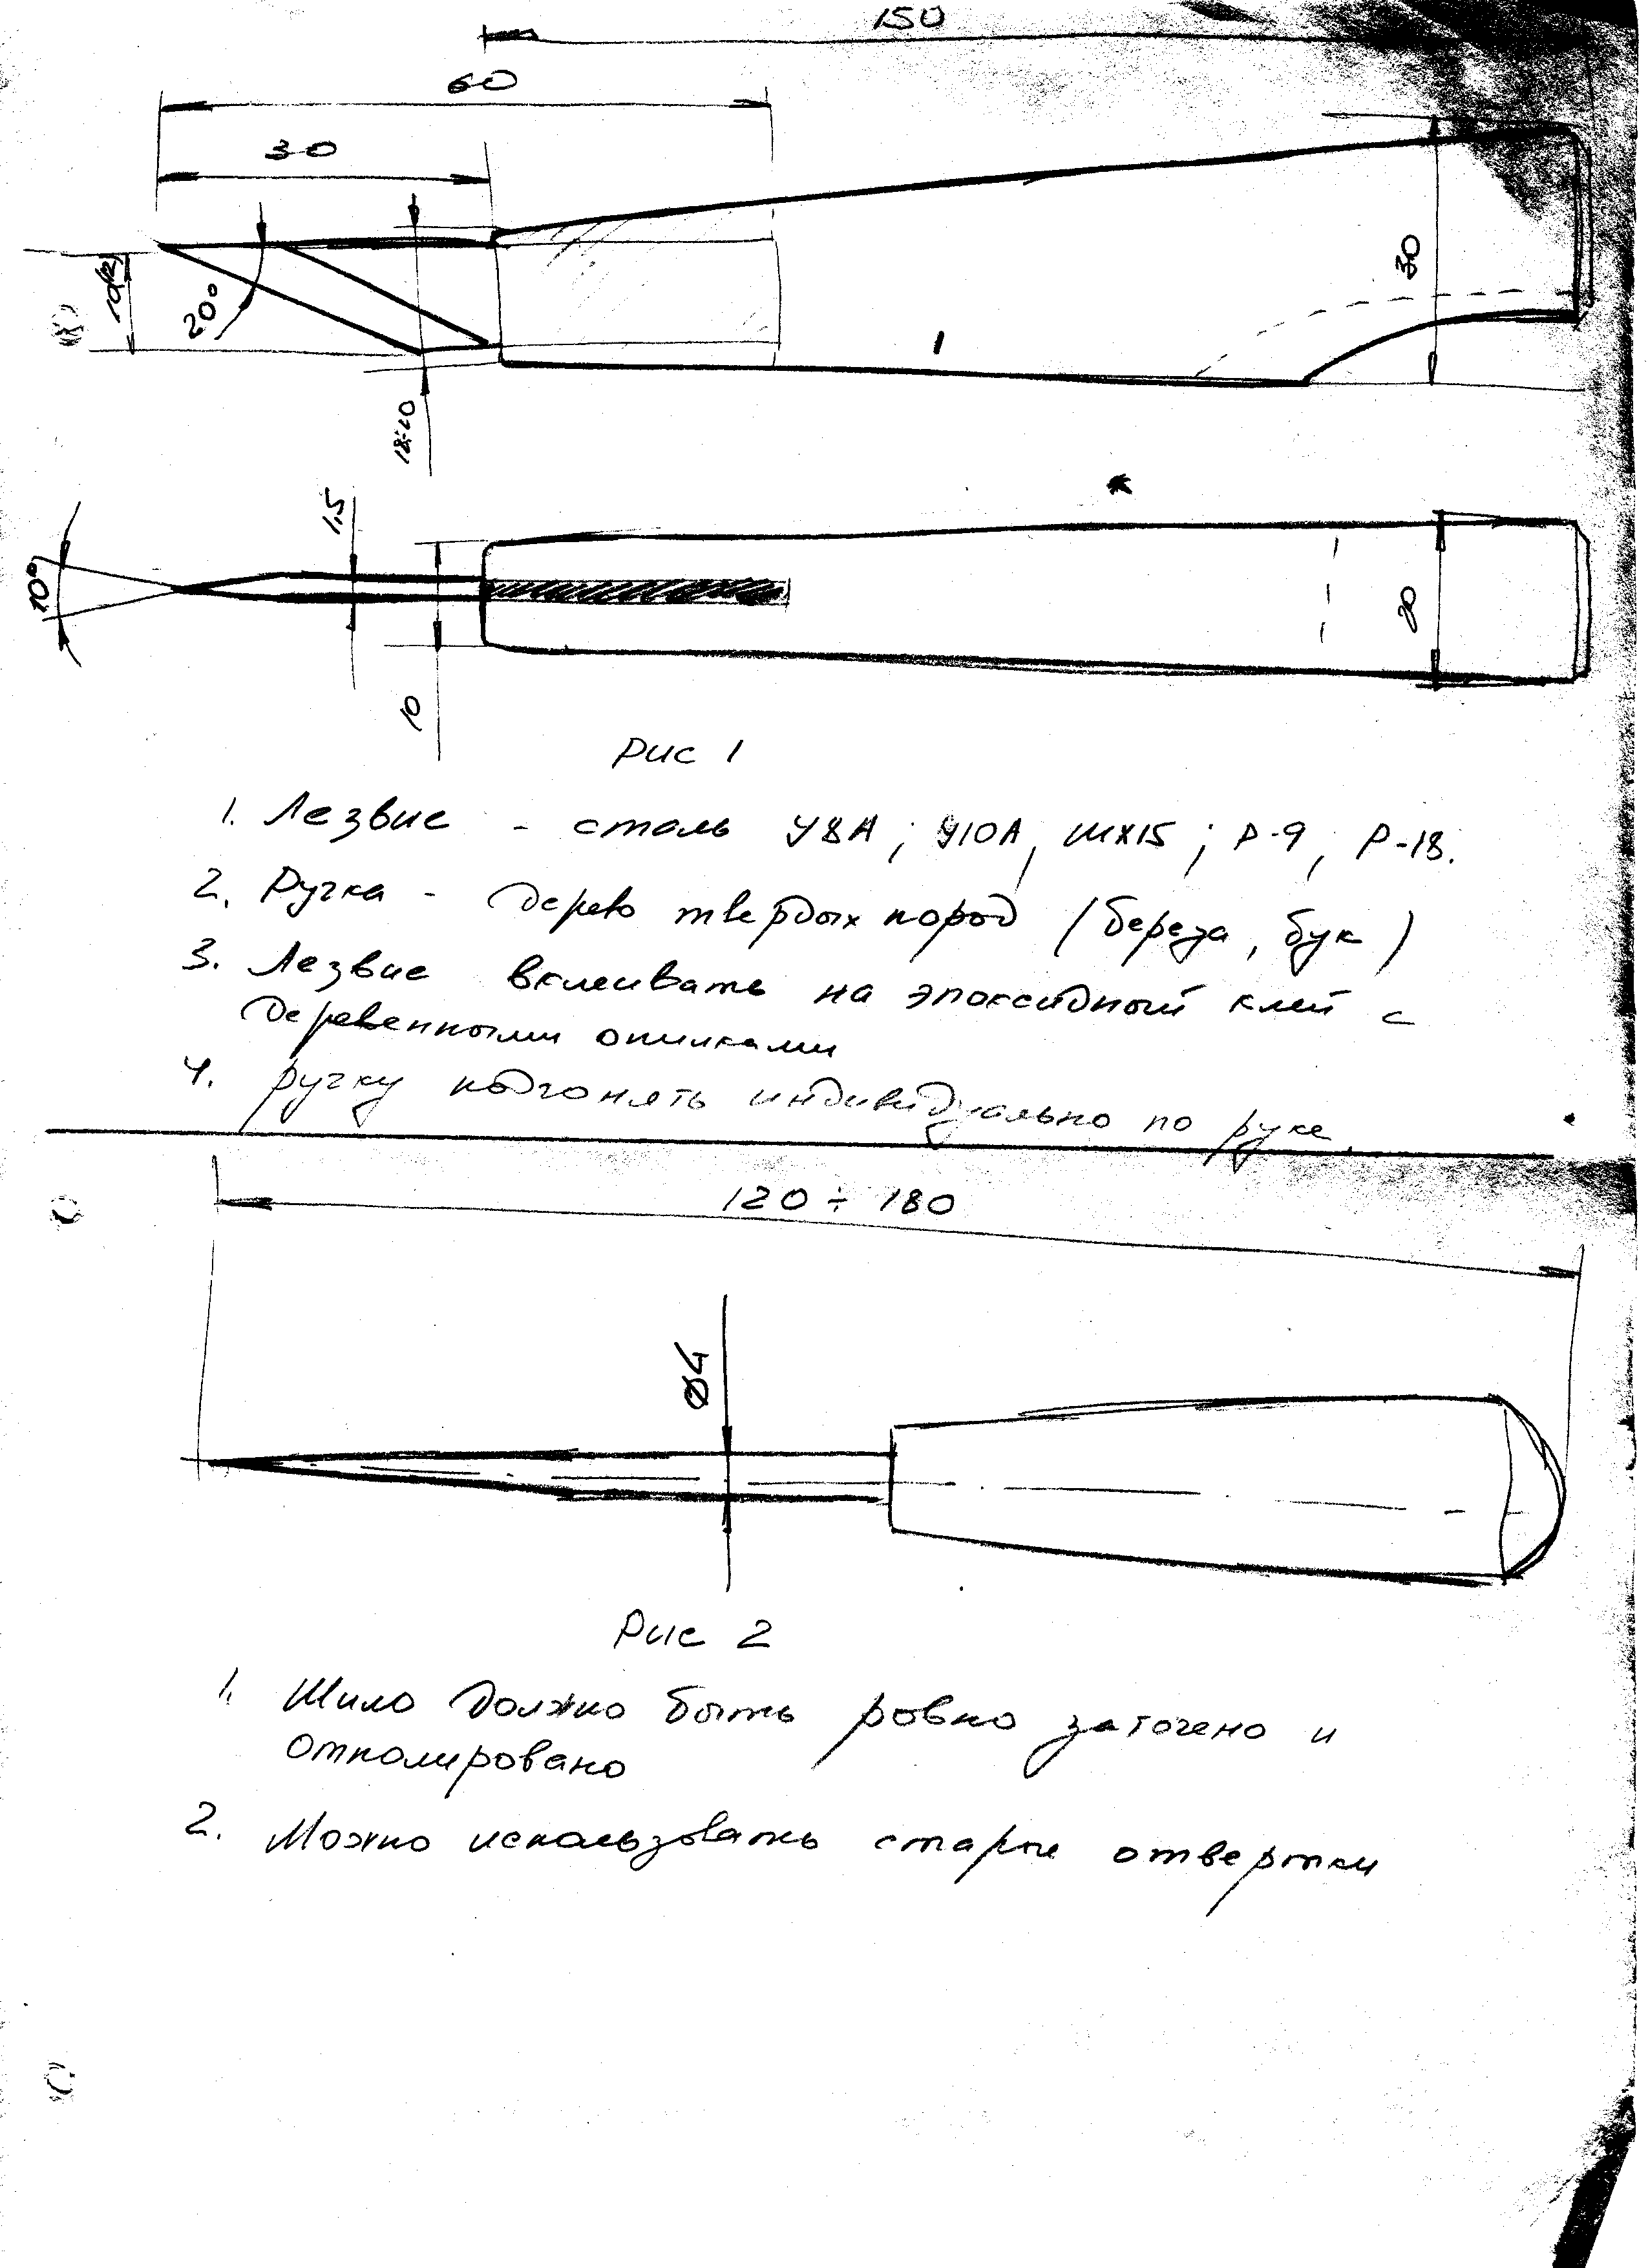 150
60
30
20°
30
18÷20
1,5
10°
20
10
Рис 1
1. Лезвие - сталь У8А; У10А, ШХ15; Р-9, Р-18.
2. Ручка - дерево твердых пород (береза, бук)
3. Лезвие вклеивать на эпоксидный клей с
деревенными опилками
4. ручку подгонять индивидуально по руке.
120 ÷ 180
⌀4
Рис 2
1. Шило должно быть ровно заточено и
отполировано
2. Можно использовать старые отвертки